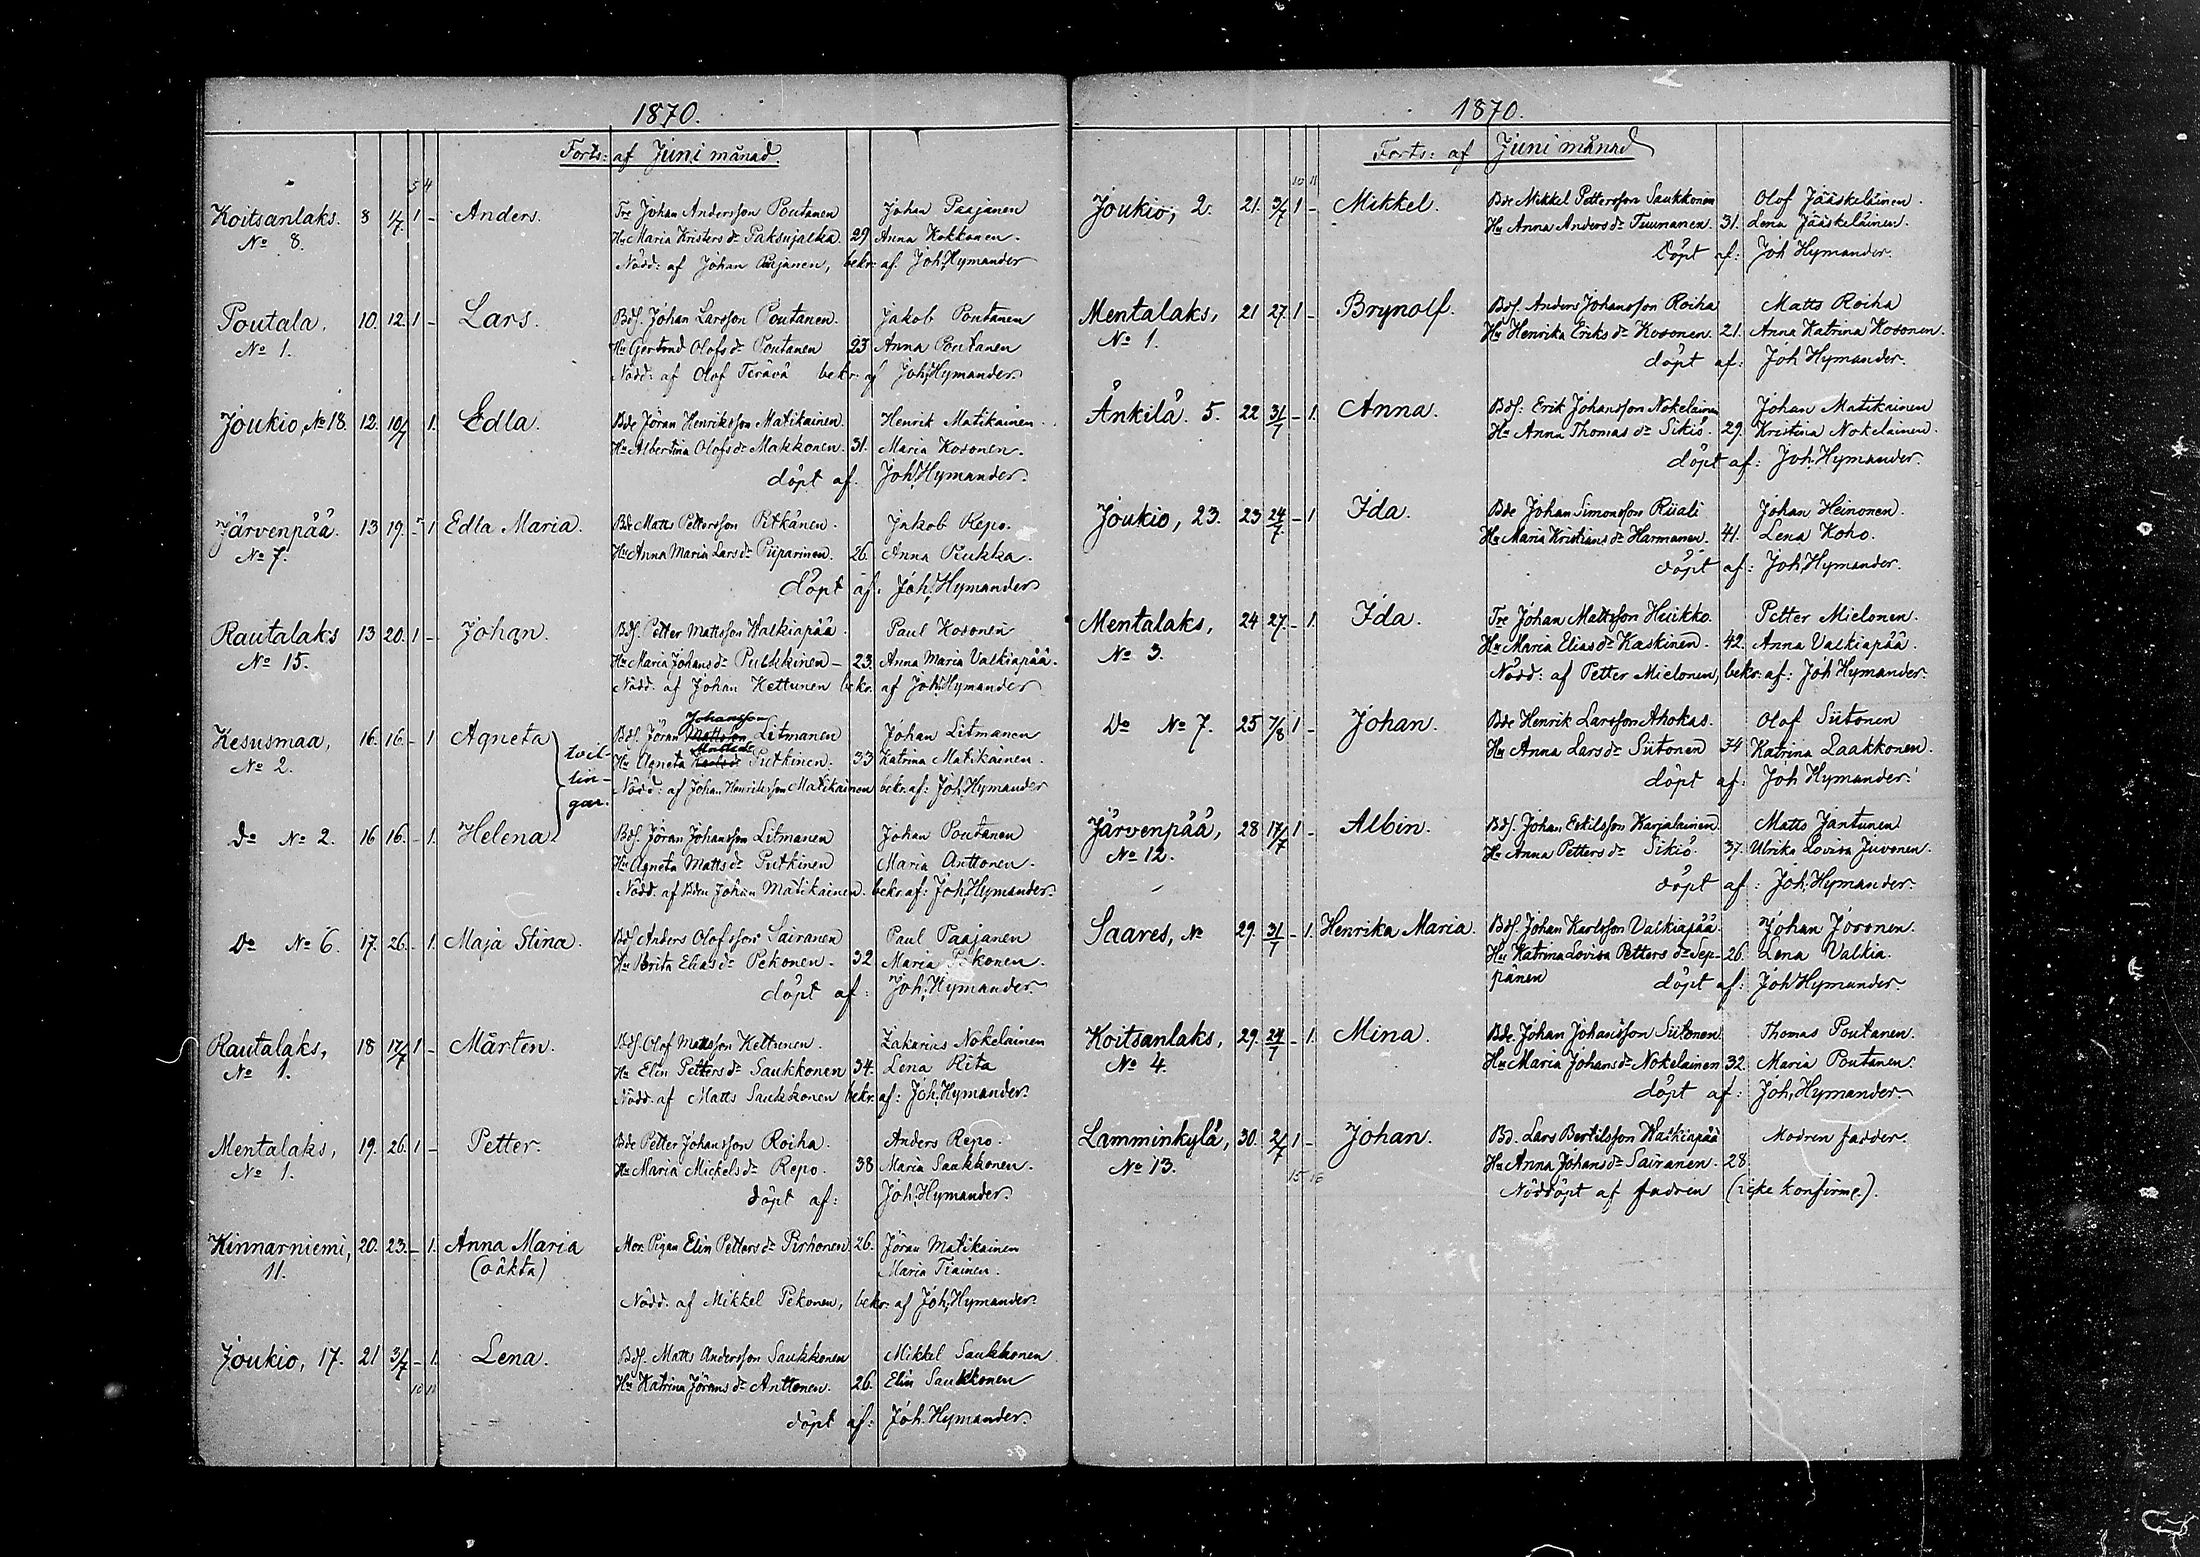 1870.
Forts: af Juni månad.
5 4
Koitsanlaks. 8 1/7. 1 – Anders. Tre Johan Andersson Poutanen Johan Paajanen
No 8. Hu Maria Kristers dr Paksujalka. 29 Anna Kokkonen.
Nödd: af Johan Paajanen, bekr: af. Joh, Hymander
Poutala, 10. 12. 1 – Lars. Bdf. Johan Larsson Poutanen. Jakob Poutanen
No 1. Hu Gertrud Olofs dr Poutanen 23 Anna Poutanen
Nödd: af Olof Terävä bekr. af Joh, Hymander.
Joukio, No 18. 12. 10/7 1. Edla. Bde Jöran Henriksson Matikainen. Henrik Matikainen.
Hu Albertina Olofs dr Makkonen. 31. Maria Kosonen.
döpt af. Joh, Hymander.
Järvenpää. 13 19. – 1 Edla Maria. Bde Matts Pettersson Pitkänen. Jakob Repo.
No 7. Hu Anna Maria Lars dr Piiparinen. 26. Anna Pukka.
döpt af: Joh, Hymander
Rautalaks 13 20. 1 – Johan. Bdf. Petter Mattsson Walkiapää. Paul Kosonen
No 15. Hu Maria Johans dr Pulkkinen – 23. Anna Maria Valkiapää.
Nödd. af Johan Kettunen bekr. af Joh, Hymander
Johansson
Kesusmaa, 16. 16. – 1 Agneta Bdf. Jöran Mattsson Litmanen Johan Litmanen
No 2. Hu Agneta Putkinen. 33 Katrina Matikainen.
tvil-
lin-
gar.
Nödd: af Johan Henriksson Matikainen bekr. af: Joh, Hymander
Do No 2. 16 16. – 1. Helena Bdf. Jöran Johansson Litmanen Johan Poutanen
Hu Agneta Matts dr Putkinen Maria Anttonen.
Nödd. af Bden Johan Matikainen. bekr. af: Joh, Hymander.
Do No 6. 17. 26. – 1. Maja Stina. Bdf Anders Olofsson Sairanen Paul Paajanen
Hu Brita Elias dr Pekonen. 32 Maria Pekonen.
döpt af: Joh, Hymander.
Rautalaks, 18 17/7 1 – Mårten. Bdf. Olof Mattsson Kettunen. Zakarius Nokelainen
No 1. Hu Elin Petters dr Saukkonen 34. Lena Rita
Nödd: af Matts Saukkonen bekr. af: Joh, Hymander.
Mentalaks, 19. 26. 1 – Petter. Bde Petter Johansson Roiha. Anders Repo.
No 1. Hu Maria Mickels dr Repo. 38 Maria Saukkonen.
döpt af: Joh, Hymander.
Kinnarniemi, 20. 23. – 1. Anna Maria Mor. Pigan Elin Petters dr Pirhonen. 26. Jöran Matikainen
11. (oäkta) Maria Tiainen.
Nödd. af Mikkel Pekonen, bekr. af Joh, Hymander.
Joukio, 17. 21 3/7 – 1. Lena. Bdf. Matts Andersson Saukkonen Mikkel Saukkonen
10 11 Hu Katrina Jörans dr Anttonen. 26. Elin Saukkonen
döpt af: Joh. Hymander.
1870.
Forts: af Juni månad
10 11
Joukio, 2. 21. 3/7 1 – Mikkel. Bde Mikkel Pettersson Saukkonen Olof Jääskeläinen.
Hu Anna Anders dr Tuunanen. 31. Lena Jääskeläinen.
Döpt af: Joh Hymander.
Mentalaks, 21 27. 1 – Brynolf. Bdf. Anders Johansson Roiha Matts Roiha
No 1. Hu Henrika Eriks dr Kosonen. 21. Anna Katrina Kosonen.
döpt af: Joh Hymander.
Änkilä. 5. 22 31/7 – 1. Anna. Bdf: Erik Johansson Nokelainen Johan Matikainen
Hu Anna Thomas dr Sikiö. 29. Kristina Nokelainen.
döpt af: Joh, Hymander.
Joukio, 23. 23 24/7. – 1 Ida. Bde Johan Simonsson Riiali Johan Heinonen.
Hu Maria Kristians dr Harmanen. 41. Lena Koho.
döpt af: Joh, Hymander.
Mentalaks, 24 27. – 1. Ida. Tre Johan Mattsson Huikko. Petter Mielonen.
No 3. Hu Maria Elias dr Kaskinen. 42. Anna Valkiapää.
Nödd: af Petter Mielonen, bekr: af: Joh Hymander.
Do No 7. 25 7/8 1 – Johan. Bde Henrik Larsson Ahokas. Olof Siitonen
Hu Anna Lars dr Siitonen 34 Katrina Laakkonen.
döpt af: Joh Hymander.
Järvenpää, 28 17/7 1 – Albin. Bdf. Johan Eskilsson Karjalainen. Matts Jantunen
No 12. Hu Anna Petters dr Sikiö. 37. Ulrika Lovisa Juvonen.
döpt af: Joh, Hymander.
Saares, No 29. 31/7 – 1. Henrika Maria. Bdf. Johan Karlsson Valkiapää. Johan Joronen.
Hu Katrina Lovisa Petters dr Sep- 26. Lena Valkia.
pänen döpt af: Joh Hymander.
Koitsanlaks, 29. 24/7 – 1. Mina. Bde. Johan Johansson Siitonen. Thomas Poutanen.
No 4. Hu Maria Johans dr Nokelainen 32. Maria Poutanen.
döpt af: Joh, Hymander.
Lamminkylä, 30. 2/7 1 – Johan. Bd. Lars Bertilsson Walkiapää Modren fadder.
No 13. Hu Anna Johans dr Sairanen. 28
15 16
Nöddöpt af fadren (icke konfirme.).